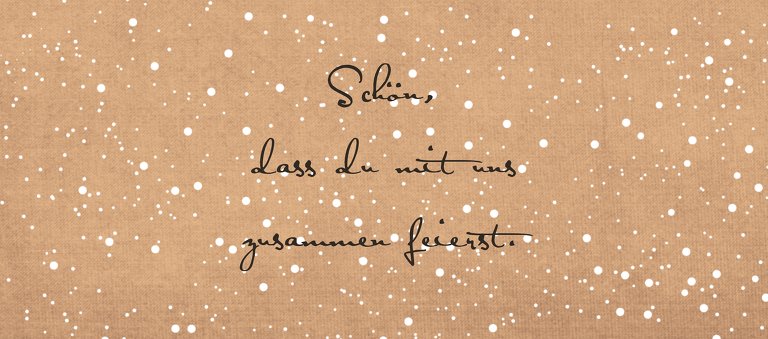 Schön,
dass du mit uns
zusammen feierst.